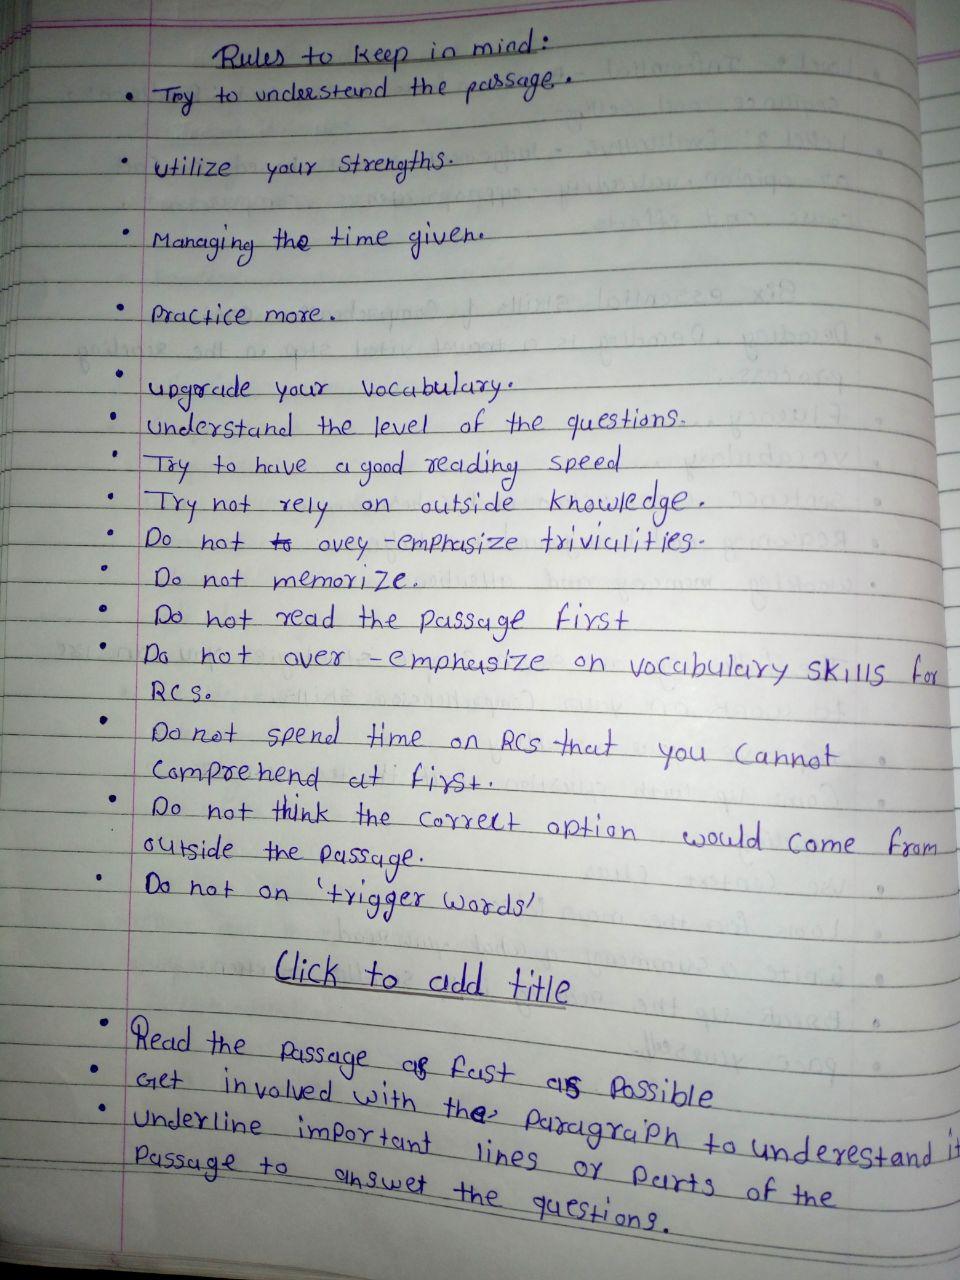 Rules to keep in mind:
• Try to understand the passage.
• utilize your strengths.
• Managing the time given.
• Practice more.
• upgrade your vocabulary.
• understand the level of the questions.
• Try to have a good reading speed
• Try not rely on outside knowledge.
• Do not to over-emphasize trivialities.
• Do not memorize.
• Do not read the passage first
• Do not over-emphasize on vocabulary skills for
RCs.
• Do not spend time on RCs that you cannot
comprehend at first.
• Do not think the correct option would come from
outside the passage.
• Do not on 'trigger words'
Click to add title
• Read the passage as fast as possible
• Get involved with the paragraph to underestand it
• underline important lines or parts of the
passage to answer the questions.